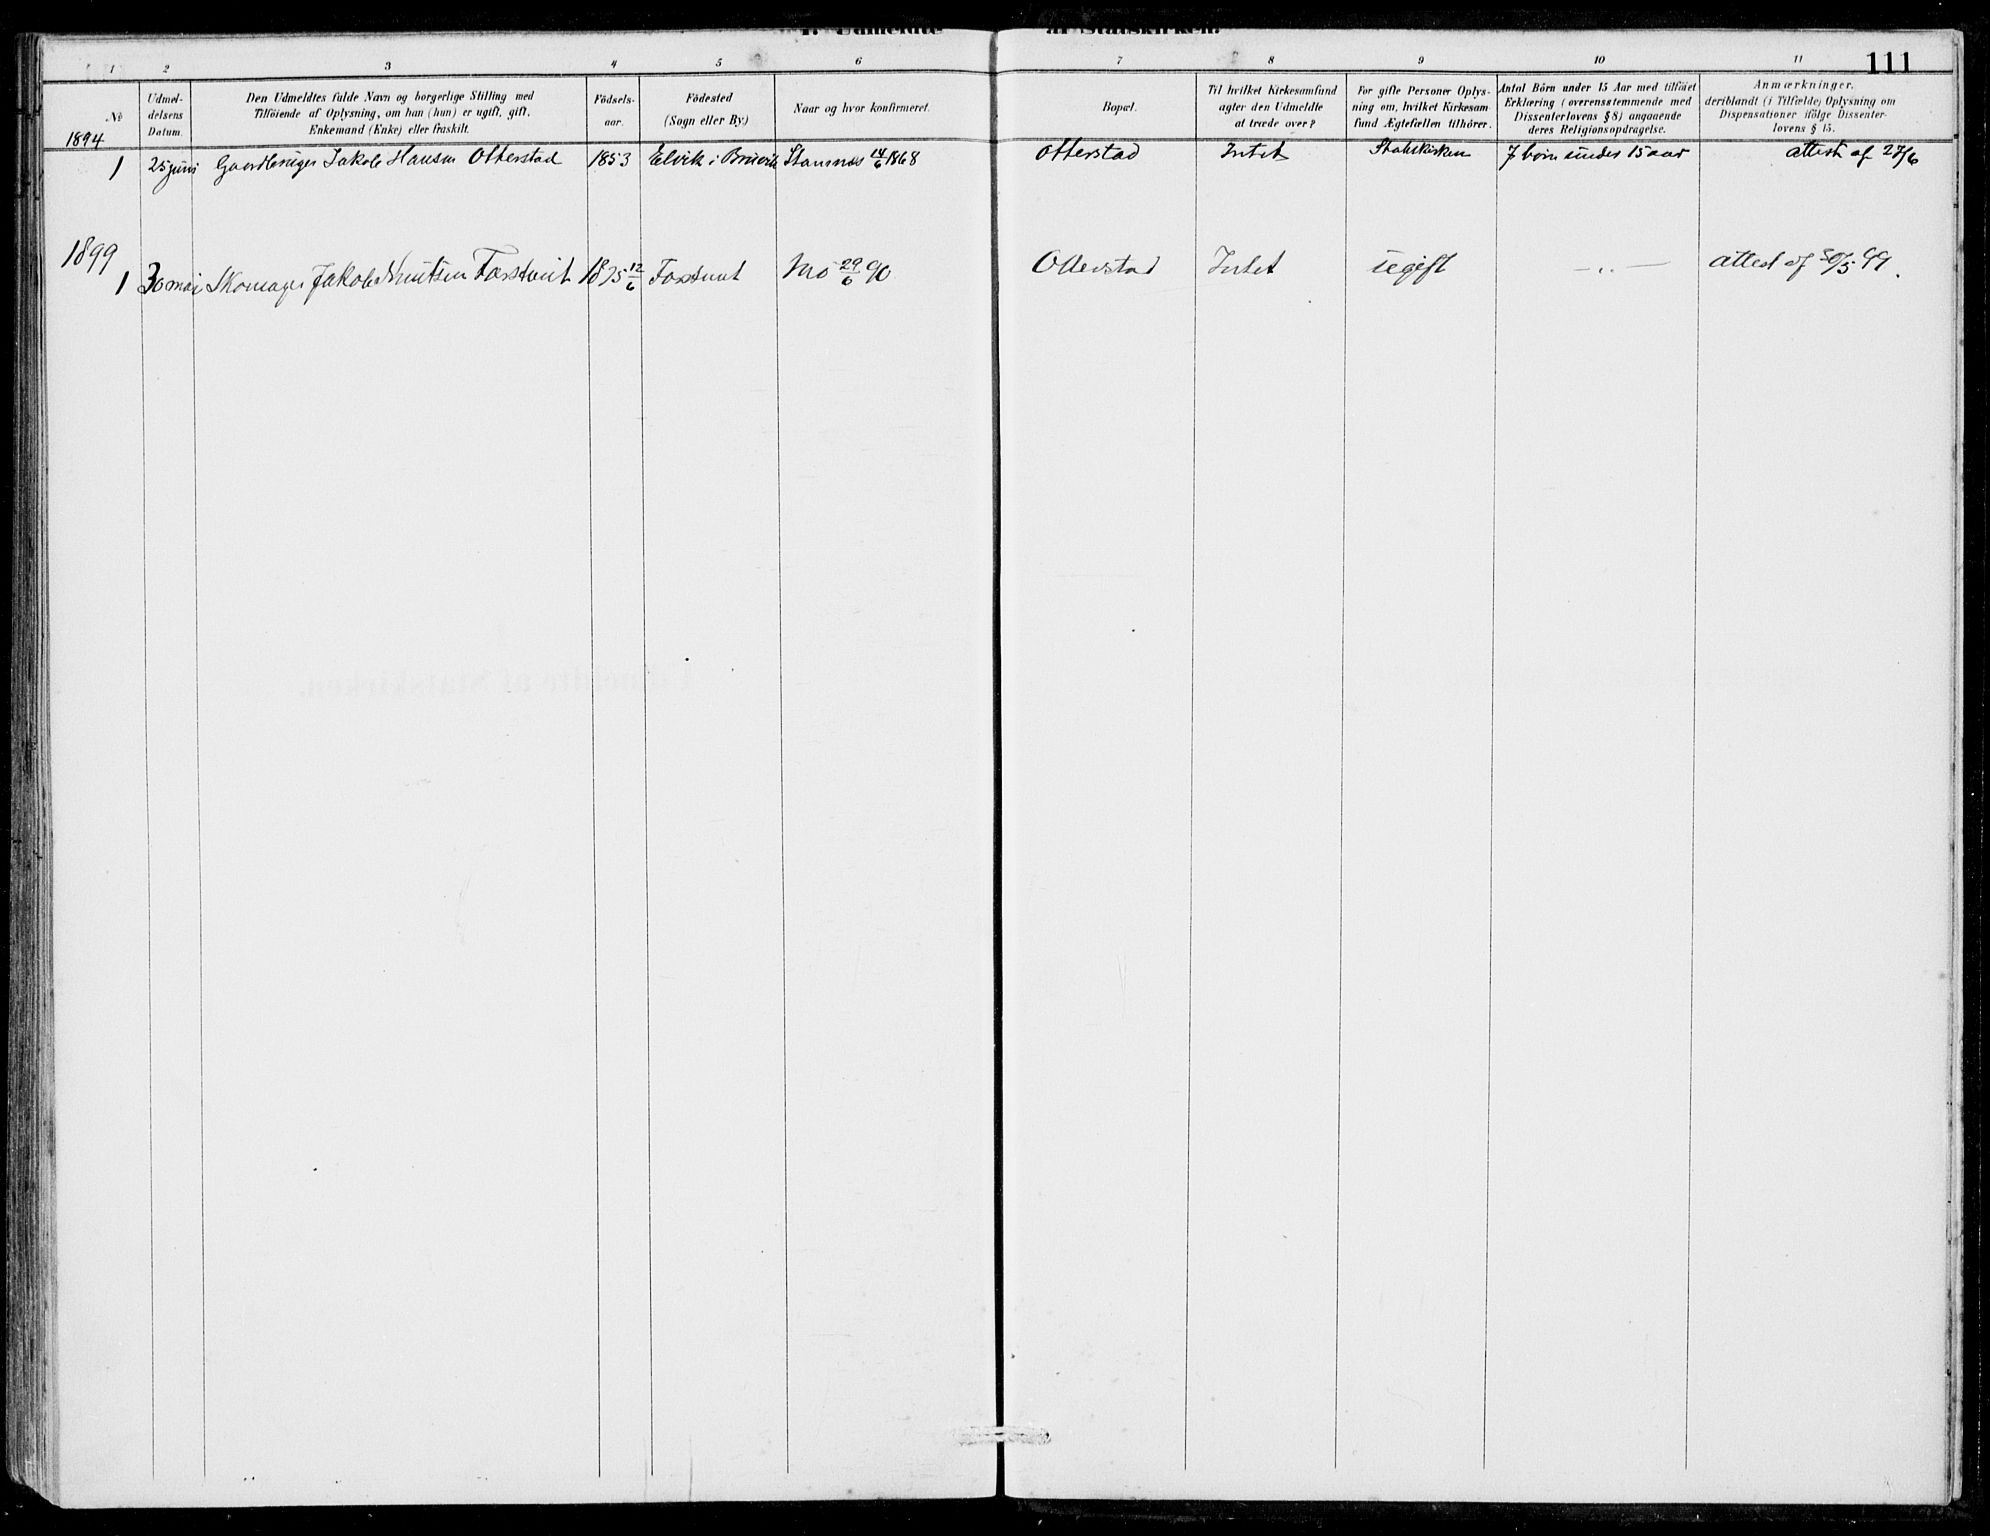 I. Udmeldte af Statskirken.
111
1 2 3 4 5 6 7 8 9 10 11
No
Udmel-
delsens
Datum.
Den Udmeldtes fulde Navn og borgerlige Stilling med
Tilföiende af Oplysning, om han (hun) er ugift, gift,
Enkemand (Enke) eller fraskilt.
Födsels-
aar.
Födested
(Sogn eller By.)
Naar og hvor konfirmeret.
Bopæl.
Til hvilket Kirkesamfund
agter den Udmeldte
at træde over?
For gifte Personer Oplys-
ning om, hvilket Kirkesam-
fund Ægtefællen tilhörer.
Antal Börn under 15 Aar med tilföiet
Erklæring (overensstemmende med
Dissenterlovens § 8) angaaende
deres Religionsopdragelse.
Anmærkninger,
deriblandt (i Tilfælde) Oplysning om
Dispensationer ifölge Dissenter-
lovens § 15.
1894
1 25 juni Gaardbruger Jakob Hansen Otterstad 1853 Elvik i Bruvik Stamnæs 14/6 1868 Otterstad Intet Statskirken 7 børn under 15 aar attest af 27/6
1899
1 30 mai Skomager Jakob Knutsen 1875 12/6 Mo 29/6 90 Otterstad Intet ugift — „ — attest af 30/5 99.